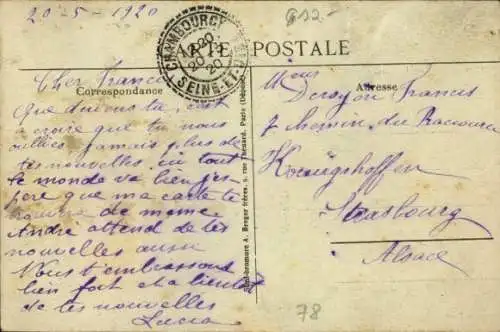 20-5-1920
CHAMBOURCY
20
20
SEINE-ET-
612-
CARTE POSTALE
Correspondance
Adresse
Cher Francis
Que deviens tu, c'est
a croire que tu nous
oublies jamais plus de
tes nouvelles ici tout
le monde va bien j'es-
père que ma carte te
trouve de meme
André attend de tes
nouvelles aussi
Nous t'embrassons
bien fort et a bientot
de tes nouvelles
Lucia
A. Breger frères, 9, rue Thénard, Paris
Mons
Francis
7 chemin du
Kœnigshoffen
Strasbourg
Alsace
78